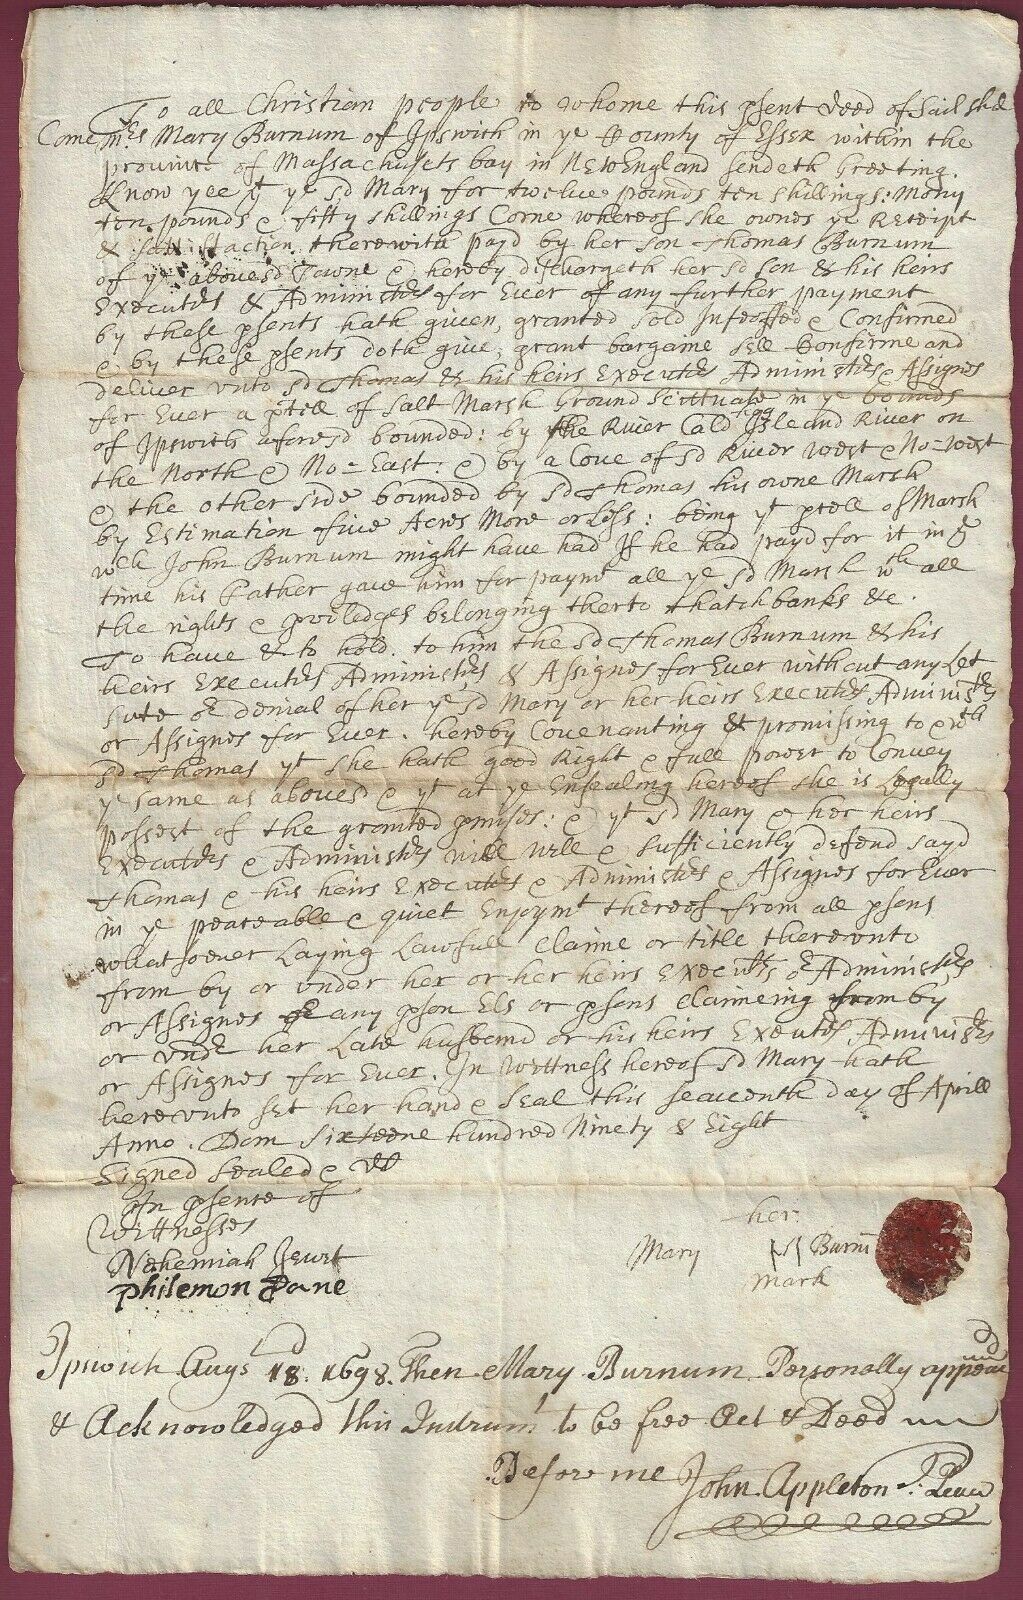 To all Christian people to whome this psent deed of Sail shall
Come Mrs Mary Burnum of Ipswich in ye County of Essex within the
province of Massachusets bay in NewEngland sendeth Greeting.
Know yee yt ye sd Mary for twelve pounds ten shillings: Mony
ten pounds & fifty shillings Corne whereof she ownes ye Receipt
& sattisfaction therewith payd by her son Thomas Burnum
of ye abovesd Towne & hereby dischargeth her sd son & his heirs
Executrs & Administrs for Ever of any further payment
by these psents hath given, granted sold Infeoffed & Confirmed
& by these psents doth give, grant bargame sell Confirme and
deliver unto sd Thomas & his heirs Executrs Administrs & Assignes
for Ever a pcell of Salt Marsh Ground Scittuate in ye bounds
of Ipswich aforesd bounded: by the River Cald Hogg Isleand River on
the North & No=East: & by a Cove of sd River west & No=west
& the other side bounded by sd Thomas his owne Marsh
by Estimation five Acres More or Less: being yt pcell of Marsh
wch John Burnum might have had If he had payd for it in ye
time his Father gave him for paymt all ye sd Marsh wth all
the rights & priviledges belonging therto thatchbanks &c.
To have & to hold. to him the sd Thomas Burnum & his
heirs Executrs Administrs & Assignes for Ever without any Let
Sute or denial of her ye sd Mary or her heirs Executrs Administrs
or Assignes for Ever. hereby Covenanting & promissing to & wth
sd Thomas yt she hath good Right & full power to Convey
ye same as abovesd & yt at ye Ensealing hereof she is Legally
possest of the granted pmises: & yt sd Mary & her heirs
Executrs & Administrs will well & sufficiently defend sayd
Thomas & his heirs Executrs & Administrs & Assignes for Ever
in ye peaceable & quiet Enjoymt thereof from all psons
whatsoever Laying Lawfull Claime or title thereunto
from by or under her or her heirs Executrs or Administrs
or Assignes or any pson Els or psons Claimeing from by
or undr her Late husband or his heirs Executrs Administrs
or Assignes for Ever. In wittness hereof sd Mary hath
hereunto set her hand & Seal this seaventh day of Aprill
Anno. Dom Sixteene hundred Ninety & Eight
Signed Sealed & dd
In psence of
Wittnesses
Nehemiah Jewet
philemon Dane
her
Mary Burnm
mark
Ipswich Augst 18. 1698. Then Mary Burnum Personally appeared
& Acknowledged this Instrumt to be free Act & Deed
Before me John Appleton J. Peace